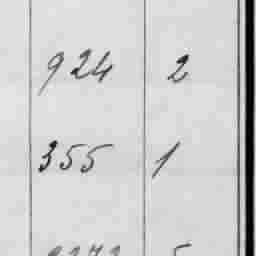 924 2
355 1